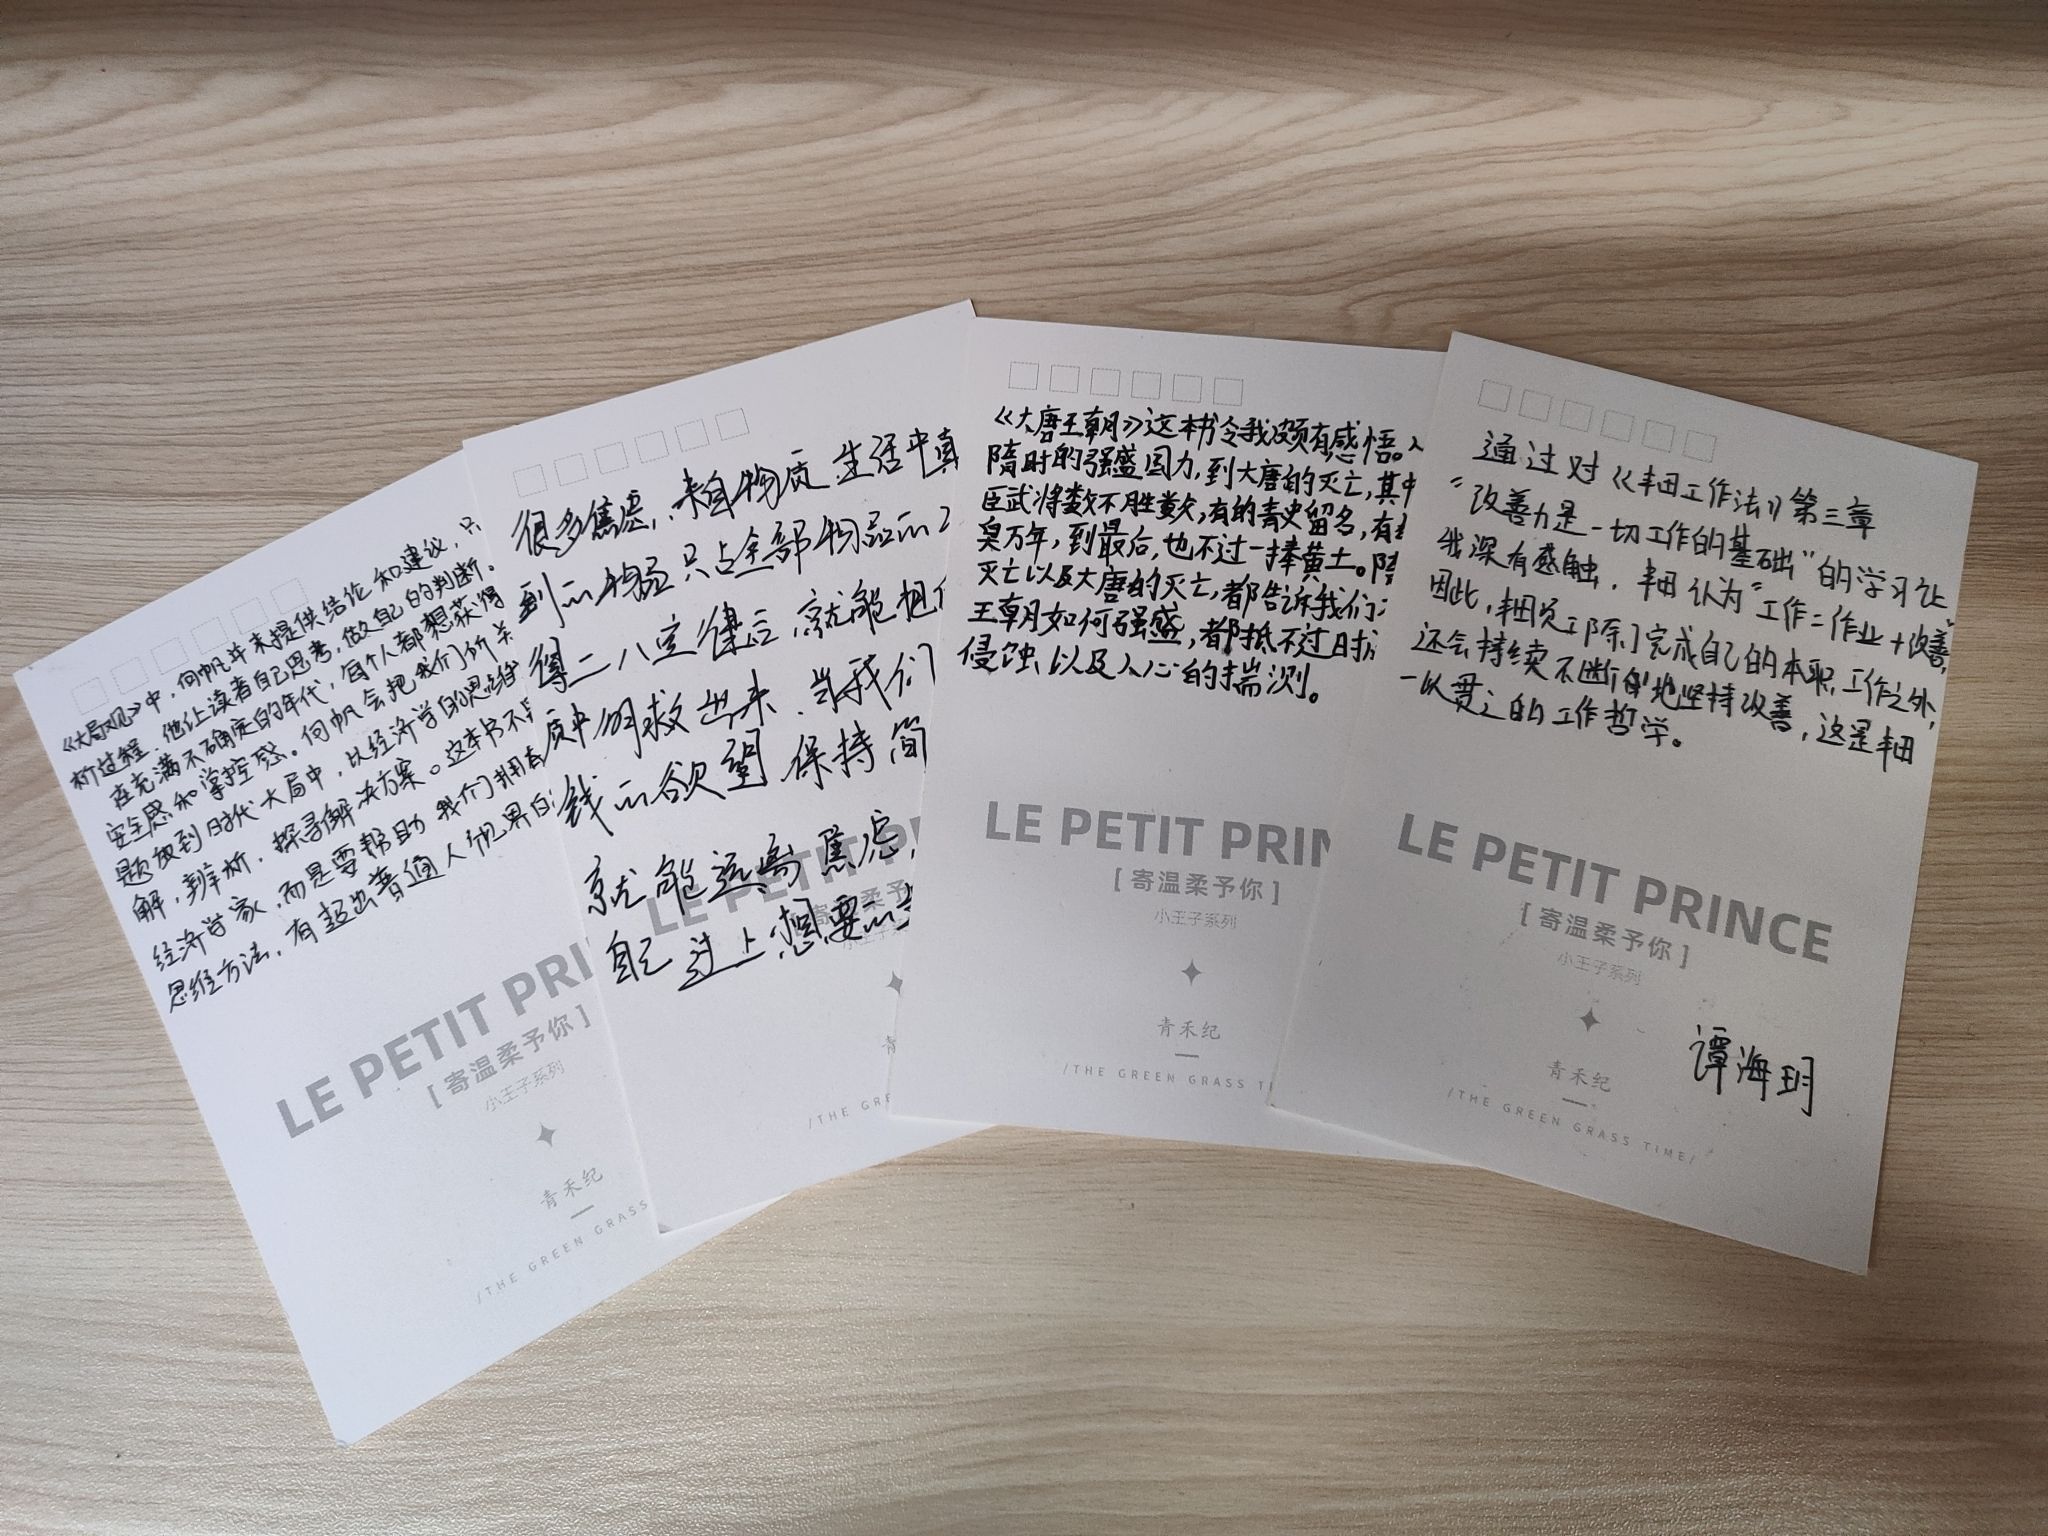 《大局观》中，何帆并未提供结论和建议，只
析过程，他让读者自己思考，做自己的判断。
在充满不确定的年代，每个人都想获得
安全感和掌控感。何帆会把我们所关
题放到时代大局中，以经济学的思维
解，辨析，探寻解决方案。这本书不
经济学家，而是要帮助我们拥有
思维方法，有超出普通人视界的
LE PETIT PRIN
[寄温柔予你]
小王子系列
青禾纪
/THE GREEN GRASS
很多焦虑，来自物质，生活中真
到的物品只占全部物品的2
得二八定律后，就能把
质中明救出来，当我们
钱的欲望，保持简
就能远离焦虑，
自己过上想要的
LE PETIT P
[寄温柔予
小王子系
青
/THE GRE
《大唐王朝》这本书令我颇有感悟。
隋时的强盛国力，到大唐的灭亡，其中
臣武将数不胜数，有的青史留名，有
臭万年，到最后，也不过一捧黄土。隋
灭亡以及大唐的灭亡，都告诉我们
王朝如何强盛，都抵不过时
侵蚀以及人心的揣测。
LE PETIT PRIN
[寄温柔予你]
小王子系列
青禾纪
/THE GREEN GRASS TI
通过对《丰田工作法》第三章
“改善力是一切工作的基础”的学习让
我深有感触，丰田认为“工作=作业+改善”
因此，丰田员工除了完成自己的本职工作之外，
还会持续不断的地坚持改善，这是丰田
一以贯之的工作哲学。
LE PETIT PRINCE
[寄温柔予你]
小王子系列
青禾纪
/THE GREEN GRASS TIME/
谭海玥